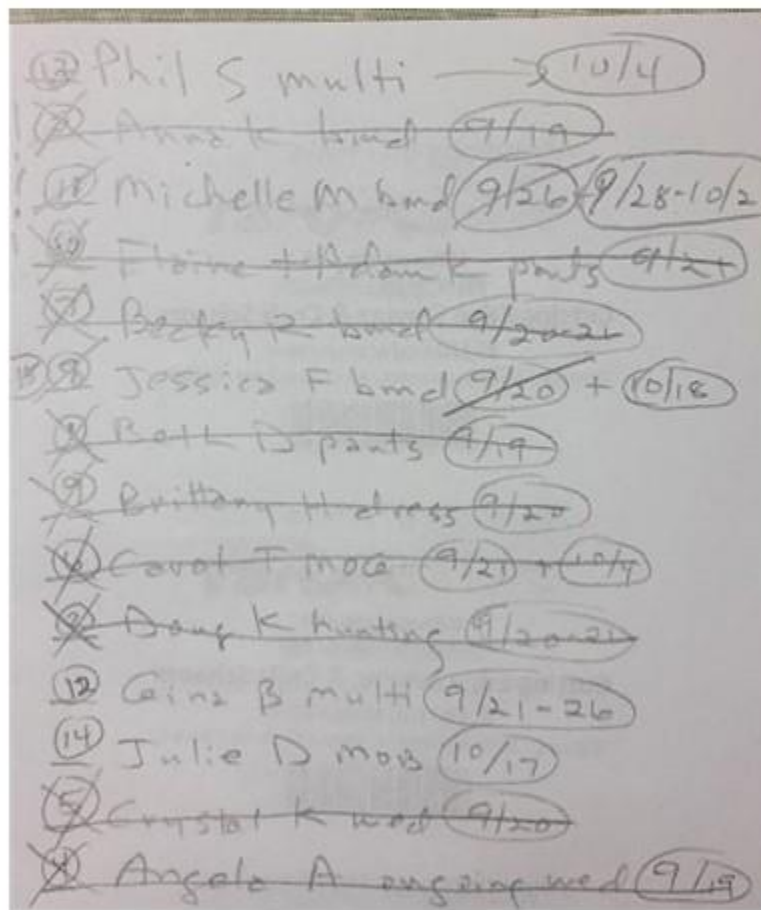 13 Phil S multi → 10/4
Anna K bmd 9/19
Michelle M bmd 9/26 + 9/28-10/2
10 Elaine + Adam K pants 9/21
7 Becky R bmd 9/20-21
8 Jessica F bmd 9/20 + 10/18
Beth D pants 9/19
9 Brittany H dress 9/20
Carol T 9/21 + 10/4
Doug K hunting 9/20-21
12 Gina B multi 9/21-26
14 Julie D MOB 10/17
5 Crystal K wed 9/20
4 Angela A ongoing wed 9/19